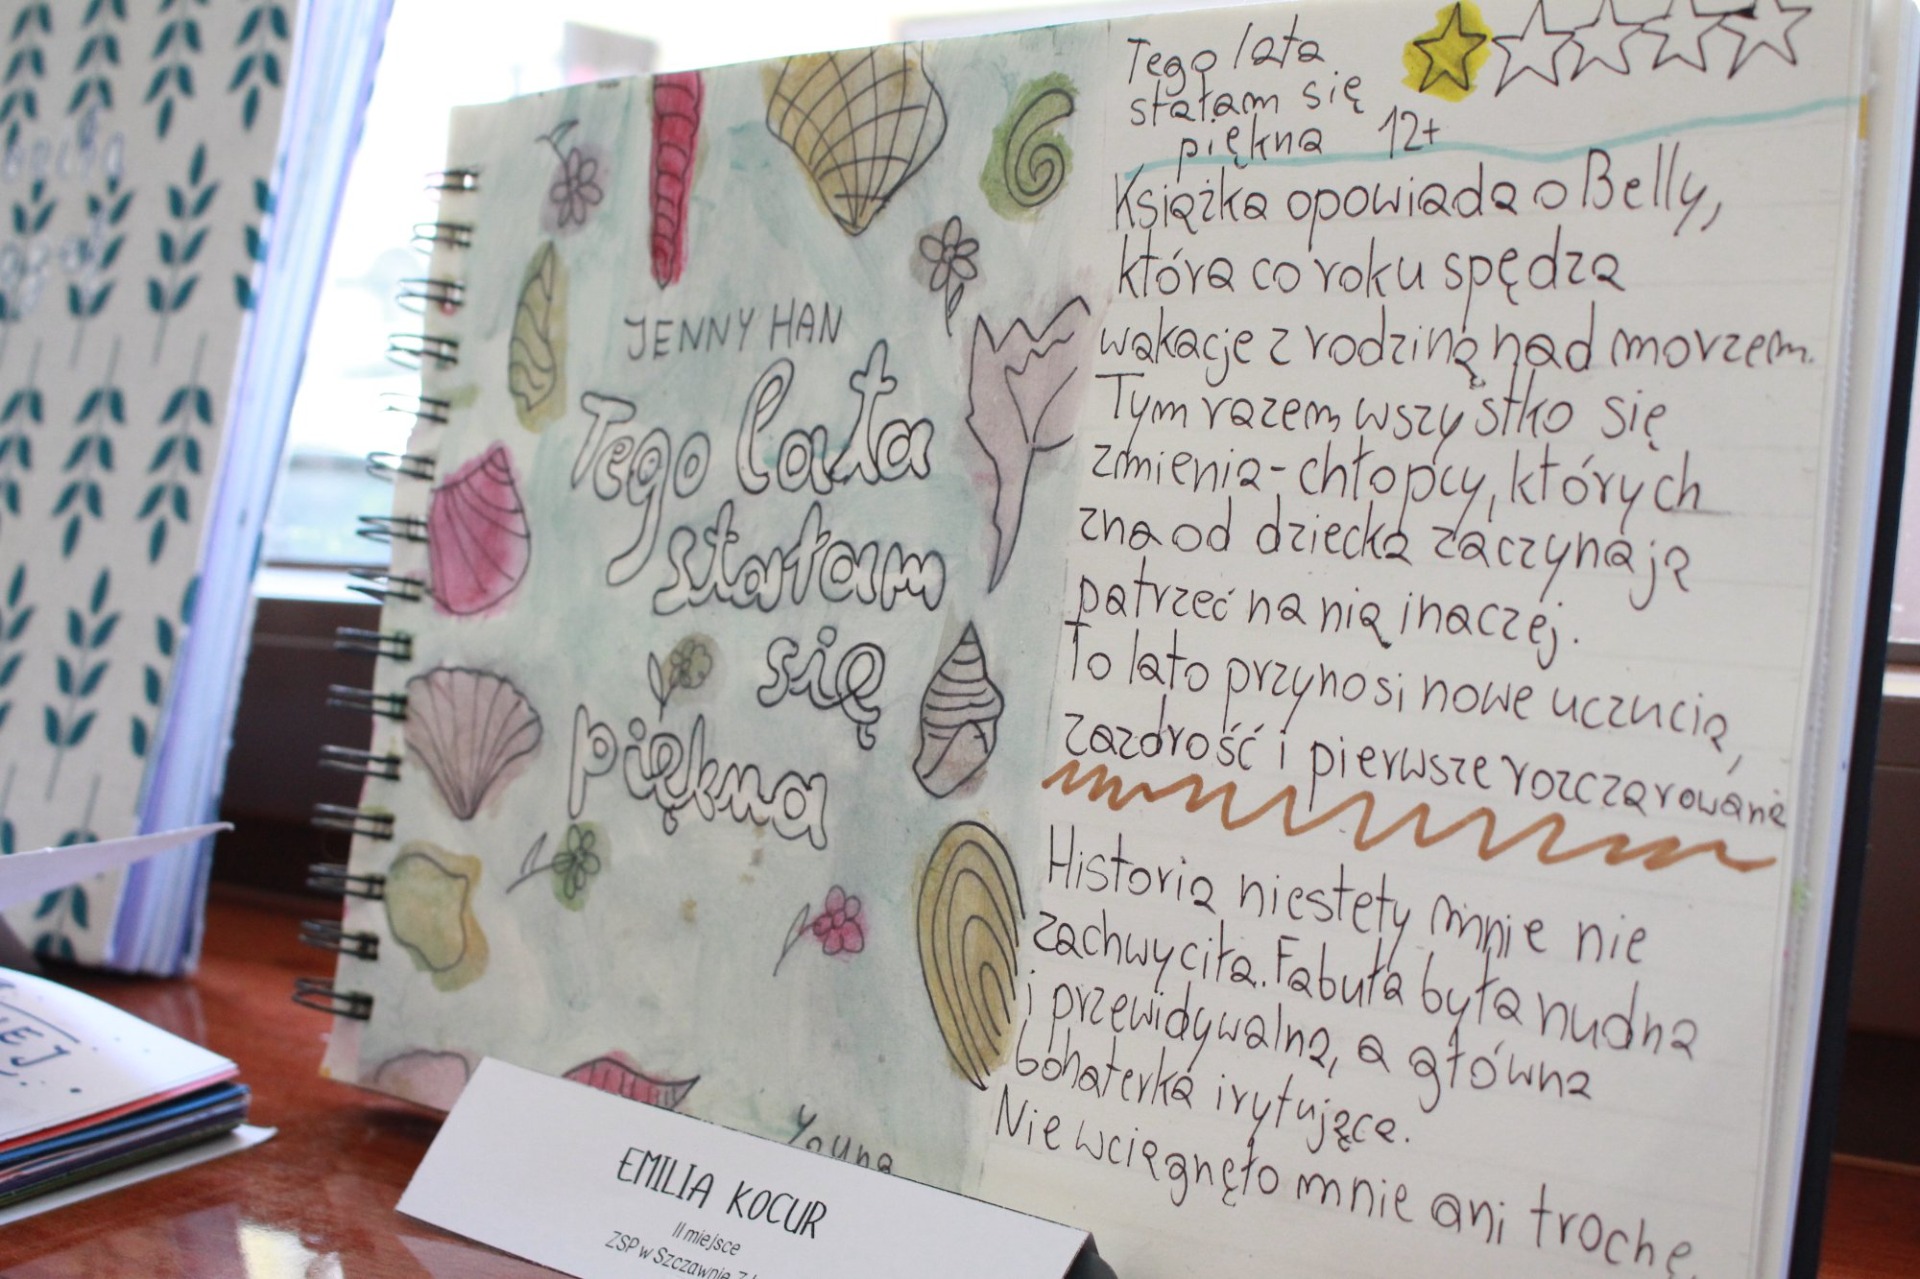 JENNY HAN
Tego lata
stałam
się
piękna
Young
Tego lata
stałam się
piękna 12+
Książka opowiada o Belly,
która co roku spędza
wakacje z rodziną nad morzem.
Tym razem wszystko się
zmienia - chłopcy, których
zna od dziecka zaczynają
patrzeć na nią inaczej.
To lato przynosi nowe uczucia,
zazdrość i pierwsze rozczarowania
Historia niestety mnie nie
zachwyciła. Fabuła była nudna
i przewidywalna, a główna
bohaterka irytująca.
Nie wciągnęło mnie ani trochę.
EMILIA KOCUR
II miejsce
ZSP w Szczawnie